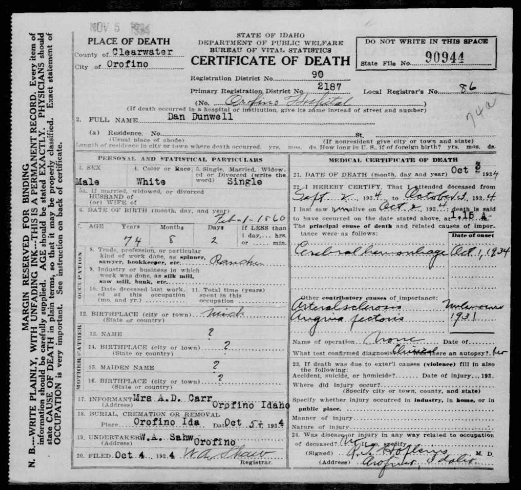 NOV 5 1934
STATE OF IDAHO
DEPARTMENT OF PUBLIC WELFARE
BUREAU OF VITAL STATISTICS
CERTIFICATE OF DEATH
PLACE OF DEATH
County of Clearwater
City of Orofino
DO NOT WRITE IN THIS SPACE
State File No. 90944
Registration District No. 90
Primary Registration District No. 2187
Local Registrar's No. 86
(No. Orofino Hospital
(If death occurred in a hospital or institution, give its name instead of street and number)
2. FULL NAME Dan Dunwell
(a) Residence. No. St.
(Usual place of abode) (If nonresident give city or town and state)
Length of residence in city or town where death occurred. yrs. mos. ds. How long in U. S. if of foreign birth? yrs. mos. ds.
PERSONAL AND STATISTICAL PARTICULARS
3. SEX Male
4. Color or Race White
5. Single, Married, Widowed or Divorced (write the word) Single
5a. If married, widowed, or divorced
HUSBAND of
(or) WIFE of
6. DATE OF BIRTH (month, day, and year) Feb-1-1860
7. AGE Years 74 Months 8 Days 2 If LESS than 1 day, hrs. or min.
8. Trade, profession, or particular kind of work done, as spinner, sawyer, bookkeeper, etc. Rancher
9. Industry or business in which work was done, as silk mill, saw mill, bank, etc.
10. Date deceased last worked at this occupation (mo. and yr.)
11. Total time (years) spent in this occupation
12. BIRTHPLACE (city or town) Mich
(State or country)
13. NAME ?
14. BIRTHPLACE (city or town) ?
(State or country)
15. MAIDEN NAME ?
16. BIRTHPLACE (city or town) ?
(State or country)
FATHER
MOTHER
17. INFORMANT Mrs A.D. Carr
(Address) Orofino Idaho
18. BURIAL, CREMATION OR REMOVAL
Place Orofino Ida Date Oct 5, 1934
19. UNDERTAKER W.A. Sahw
(Address) Orofino
20. FILED Oct 4 1934 W.A. Shaw
Registrar.
MEDICAL CERTIFICATE OF DEATH
21. DATE OF DEATH (month, day, and year) Oct 3 1934
22. I HEREBY CERTIFY, That I attended deceased from
Sept. 2 1934 to October 3, 1934
I last saw him alive on Oct 2, 1934 death is said
to have occurred on the date stated above, at 1.15 A
The principal cause of death and related causes of importance were as follows:
Date of onset
Cerebral hemorrhage Oct 1, 1934
Other contributary causes of importance:
Arteriosclerosis Unknown
Angina Pectoris 1931
Name of operation None Date of
What test confirmed diagnosis? Clinical Was there an autopsy? No
23. If death was due to external causes (violence) fill in also the following:
Accident, suicide, or homicide? Date of injury 193
Where did injury occur?
(Specify city or town, county, and state)
Specify whether injury occurred in industry, in home, or in public place.
Manner of injury
Nature of injury
24. Was disease or injury in any way related to occupation of deceased? No
(Signed) M. D.
(Address) Orofino, Idaho
MARGIN RESERVED FOR BINDING
N. B.—WRITE PLAINLY, WITH UNFADING INK—THIS IS A PERMANENT RECORD. Every item of information should be carefully supplied. AGE should be stated EXACTLY. PHYSICIANS should state CAUSE OF DEATH in plain terms, so that it may be properly classified. Exact statement of OCCUPATION is very important. See instruction on back of certificate.